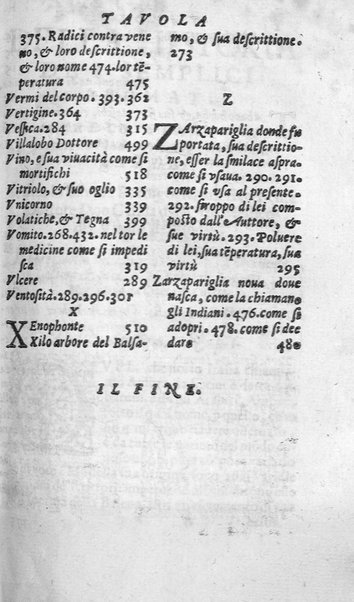 TAVOLA
375. Radici contra vene
no, & loro descrittione,
& loro nome 474. lor tē-
peratura 475
Vermi del corpo. 393. 362
Vertigine. 364 373
Vessica. 284 315
Villalobo Dottore 499
Vino, e sua viuacità come si
mortifichi 518
Vitriolo, & suo oglio 335
Vnicorno 339
Volatiche, & Tegna 399
Vomito. 268. 432. nel tor le
medicine come si impedi
sca 319
Vlcere 289
Ventosità. 289. 296. 301
X
XEnophonte 510
Xilo arbore del Balsa-
mo, & sua descrittione.
273
Z
ZArzapariglia donde fu
portata, sua descrittio-
ne, esser la smilace aspra.
come si vsaua. 290. 291.
come si vsa al presente.
292. siroppo di lei com-
posto dall'Auttore, &
sue virtù. 293. Poluere
di lei, sua tēperatura, sua
virtù 295
Zarzapariglia noua doue
nasca, come la chiamano
gli Indiani. 476. come si
adopri. 478. come si dee
dare 480
IL FINE.